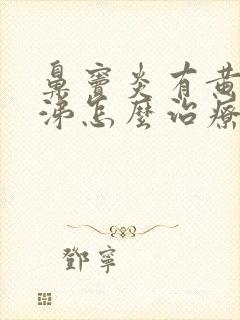 鼻竇炎有黄
涕怎麼治療
鄧寧